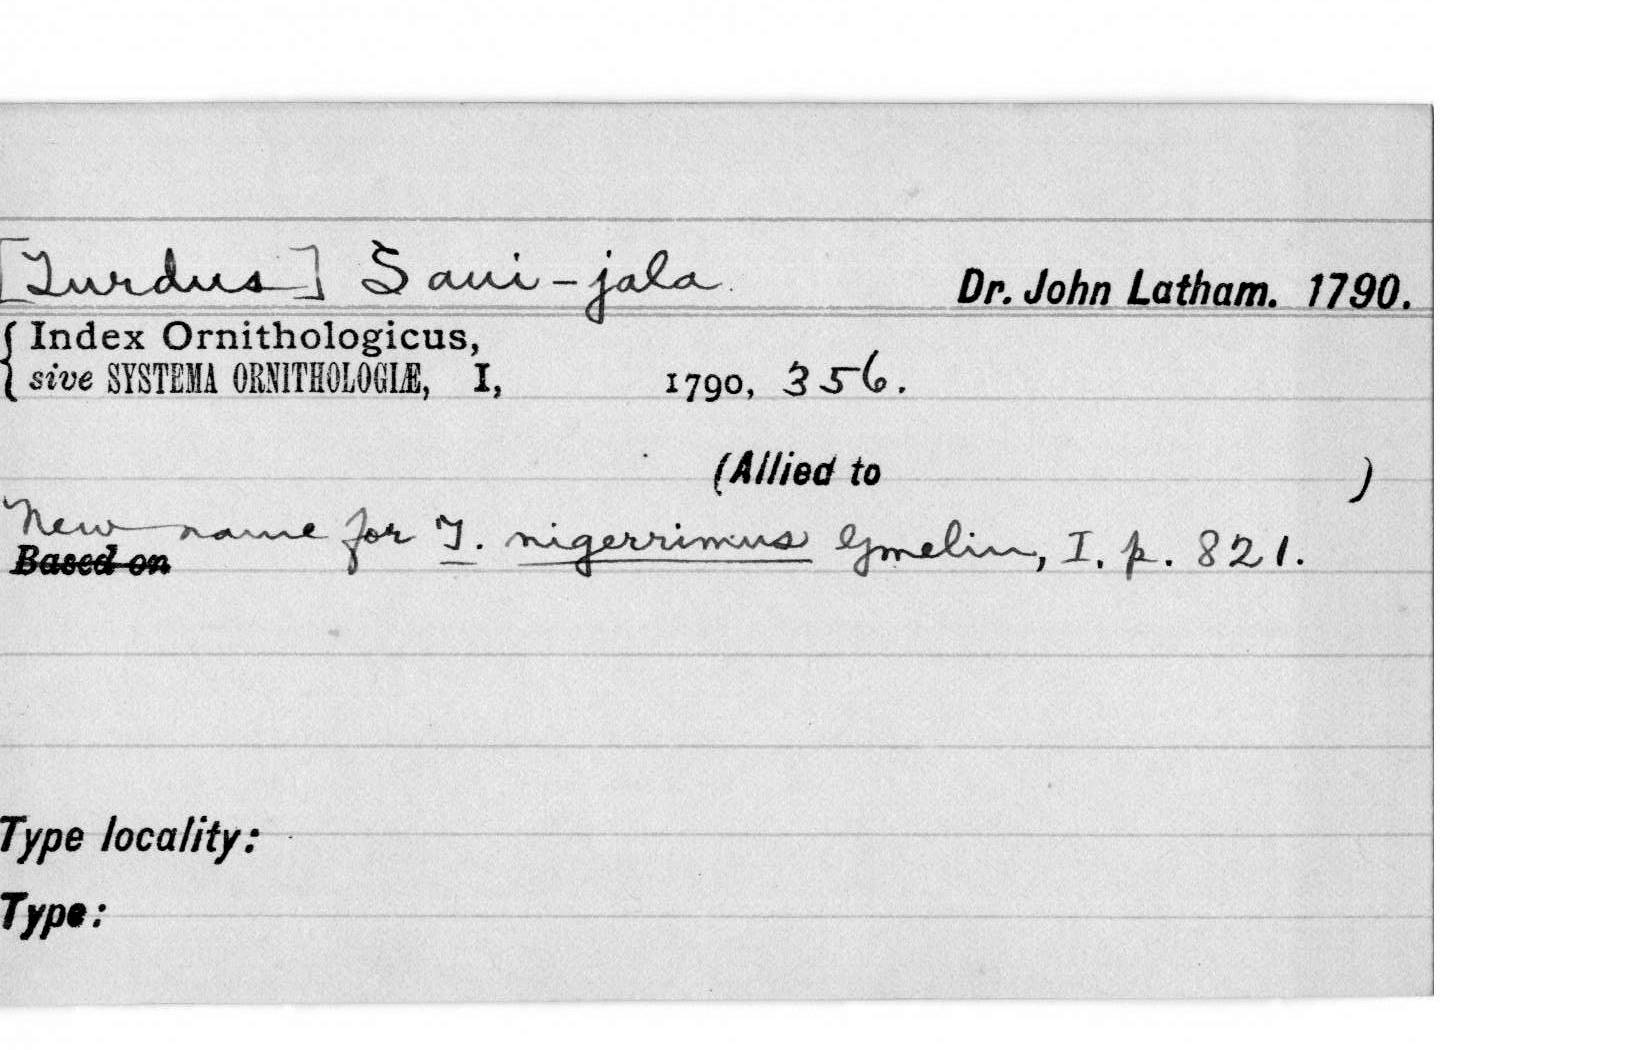 [Turdus] Saui-jala. Dr. John Latham. 1790.
{ Index Ornithologicus,
sive SYSTEMA ORNITHOLOGIÆ, I, 1790, 356.
(Allied to )
New name for T. nigerrimus Gmelin, I. p. 821.
Based on
Type locality:
Type: